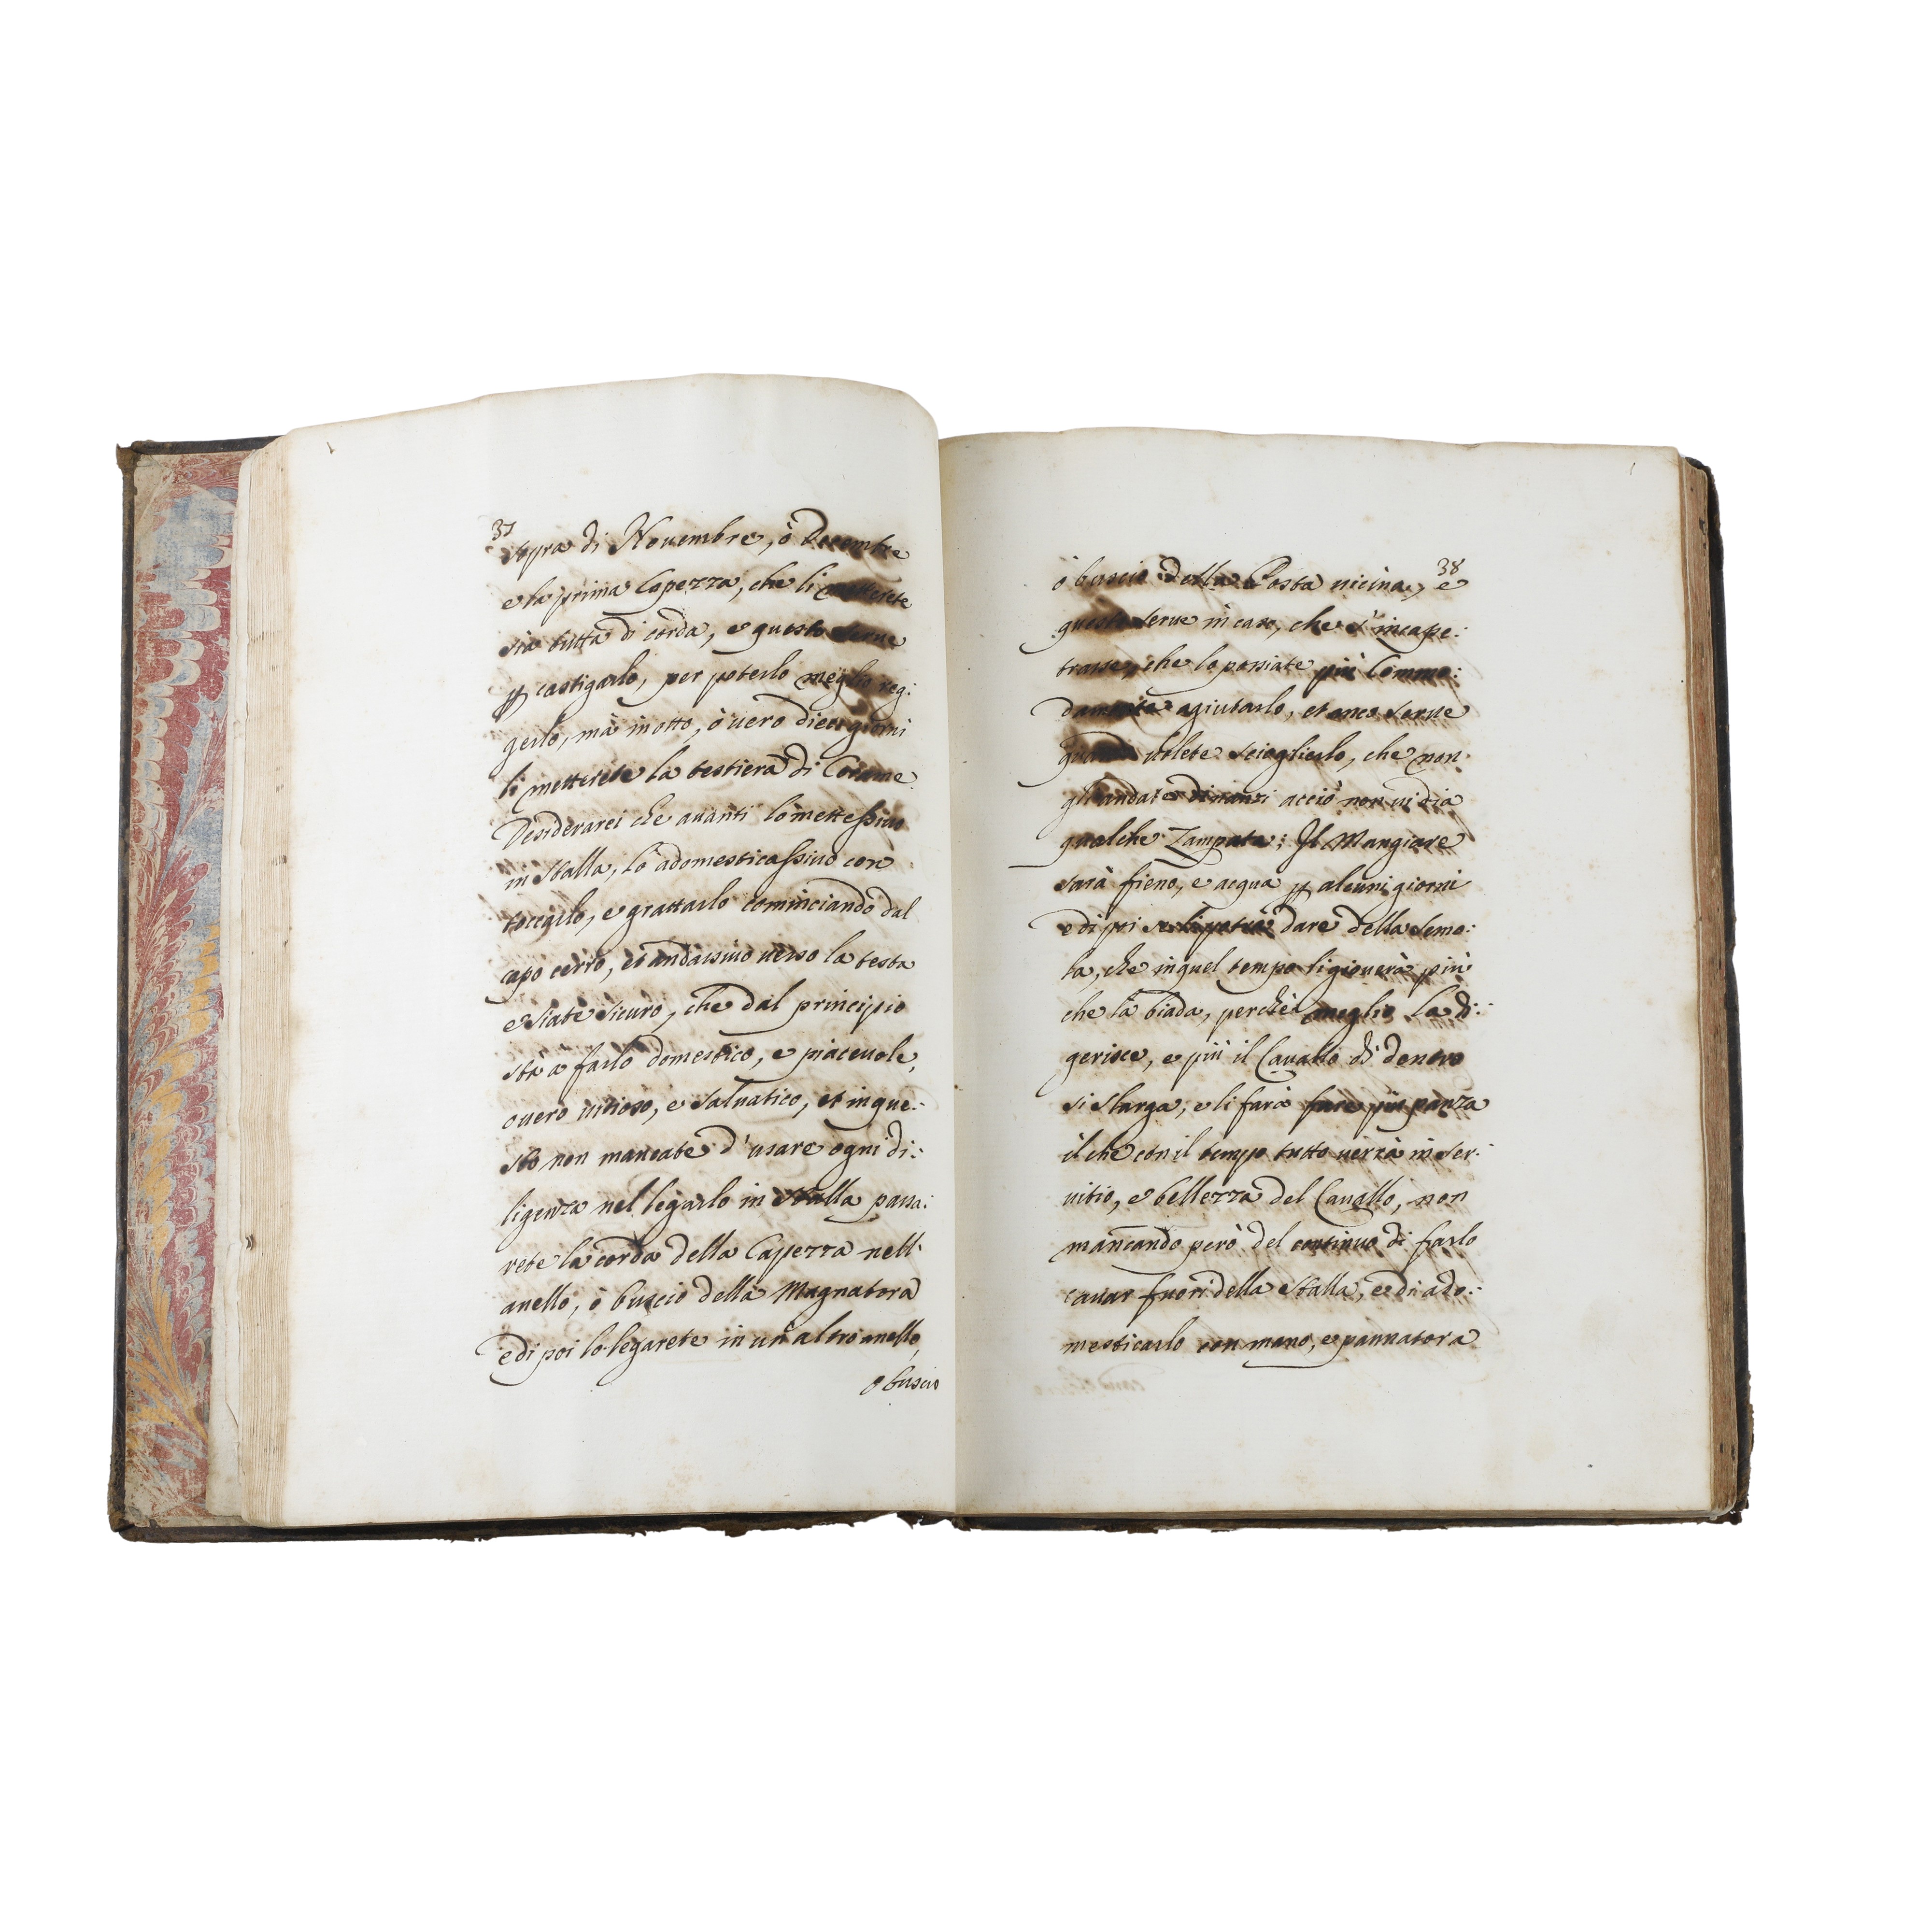 37
sopra di Nouembre, ò Decembre
e la prima Capezza, che li metterete
sia tutta di corda, e questo serue
ꝑ castigarlo, per poterlo meglio reg:
gerlo, mà in otto, ò uero dieci giorni
li metterete la testiera di Corame
Desiderarei che auanti lo mettessiuo
in stalla, lo adomesticassiuo con
toccarlo, e grattarlo cominciando dal
capo cerro, et andassiuo uerso la testa
e siate sicuro, che dal principio
stà a farlo domestico, e piaceuole,
ouero uitioso, e saluatico, et in que:
sto non mancate d'usare ogni di:
ligenza nel legarlo in stalla passa:
rete la corda della Capezza nell'
anello, ò buscio della Magnatora
e di poi lo legarete in un'altro anello,
o buscio
38
ò buscio della Posta uicina, e
questo serue in caso, che s'incape:
trasse, che lo possiate più Commo:
damente agiutarlo, et anco serue
quando uolete scioglierlo, che non
gli andate dinanzi acciò non ui dia
qualche Zampata; Il Mangiare
sarà fieno, e acqua ꝑ alcuni giorni
e di poi se li potrà dare della Semo:
la, che in quel tempo li giouerà più
che la biada, perchè meglio la di:
gerisce, e più il Cauallo di dentro
si slarga, e li farà fare più panza
il che con il tempo tutto uerrà in ser:
uitio, e bellezza del Cauallo, non
mancando però del continuo di farlo
cauar fuori della stalla, e di ado:
mesticarlo con mano, e pannatora